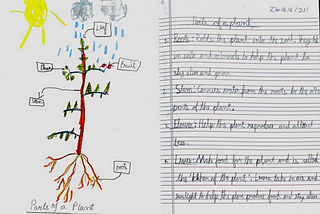 Leaf
Fruit
Stem
root
Parts of a Plant
Parts of a plant
1. Roots: Holds the plant into the soil. They take
in water and to help the plant to
stay alive and grow.
2. Stem: Carries water from the roots to the other
parts of the plant.
3. Flower: Help the plant reproduce and attract
4. Leaves: Made food for the plant and is called
the 'kitchen of the plant'. Leaves take in air and
sunlight to help the plant produce food and stay alive.